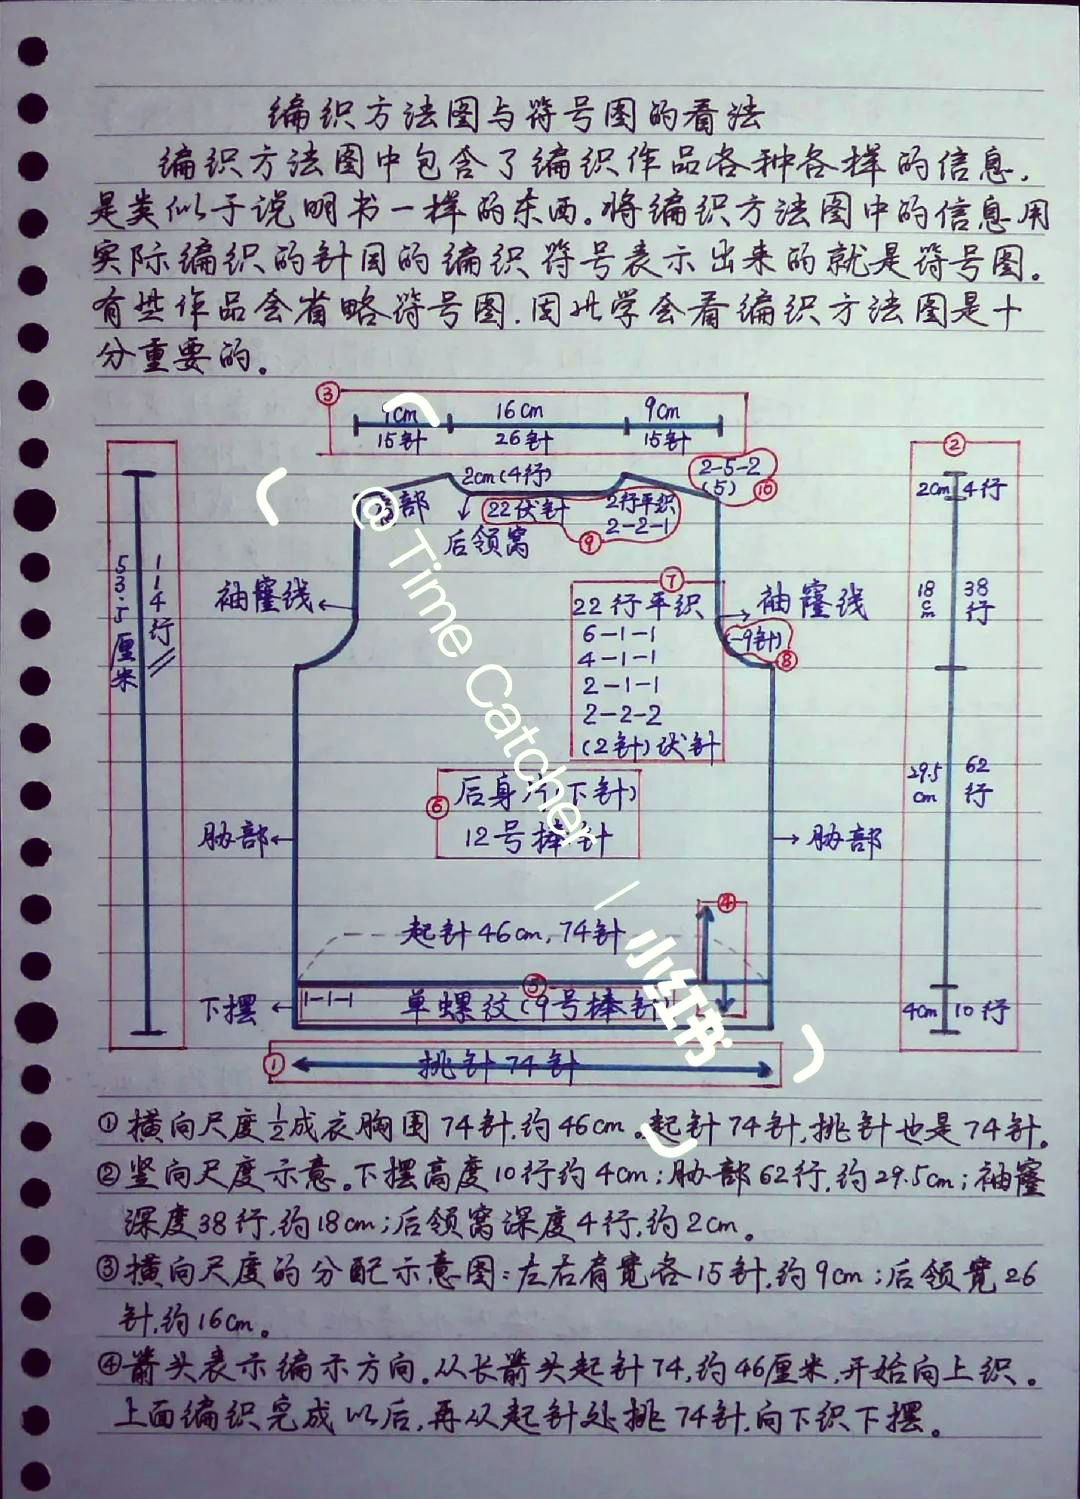 编织方法图与符号图的看法
编织方法图中包含了编织作品各种各样的信息.
是类似于说明书一样的东西。将编织方法图中的信息用
实际编织的针目的编织符号表示出来的就是符号图。
有些作品会省略符号图.因此学会看编织方法图是十
分重要的。
③
cm 16cm 9cm
15针 26针 15针
②
2cm(4行)
2-5-2
(5) ⑩
2cm 4行
肩部
22伏针
2行平织
2-2-1
⑨
后领窝
53.5厘米
114行
袖窿线
⑦
22行平织
6-1-1
4-1-1
2-1-1
2-2-2
(2针)伏针
袖窿线
(-9针)
⑧
18cm
38行
⑥
后身片(下针)
12号棒针
29.5cm
62行
胁部
胁部
④
起针46cm,74针
⑤
下摆
1-1-1
单螺纹(9号棒针
4cm 10行
① 挑针74针
①横向尺度½成衣胸围74针.约46cm。起针74针,挑针也是74针。
②竖向尺度示意。下摆高度10行约4cm;胁部62行.约29.5cm;袖窿
深度38行.约18cm;后领窝深度4行.约2cm。
③横向尺度的分配示意图:左右肩宽各15针.约9cm;后领宽26
针.约16cm。
④箭头表示编示方向.从长箭头起针74,约46厘米,开始向上织。
上面编织完成以后,再从起针处挑74针,向下织下摆。
@Time Catcher
小红书